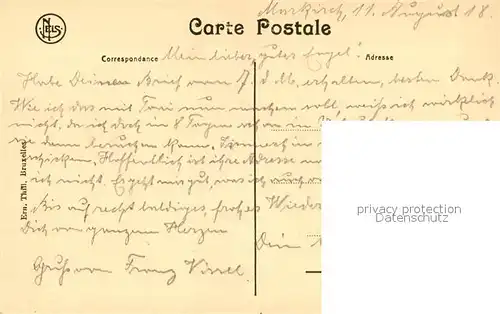 Markirch, 11. August 18.
NELS
Carte Postale
Correspondance
Adresse
Mein lieber, guter Engel!
Habe Deinen Brief vom 7. d. M. erhalten, besten Dank.
Wie ich das mit Trani nun machen soll, weiß ich wirklich
nicht, da ich doch in 8 Tagen schon in
sie dann besuchen kann. in
schicken. Hoffentlich ist ihre Adresse
ich nicht. Es geht mir gut, was ich auch
Bis auf recht baldiges, frohes Wieder
Dich von ganzem Herzen
Dein
Gruß von Franz
Ern. Thill, Bruxelles
privacy protection
Datenschutz